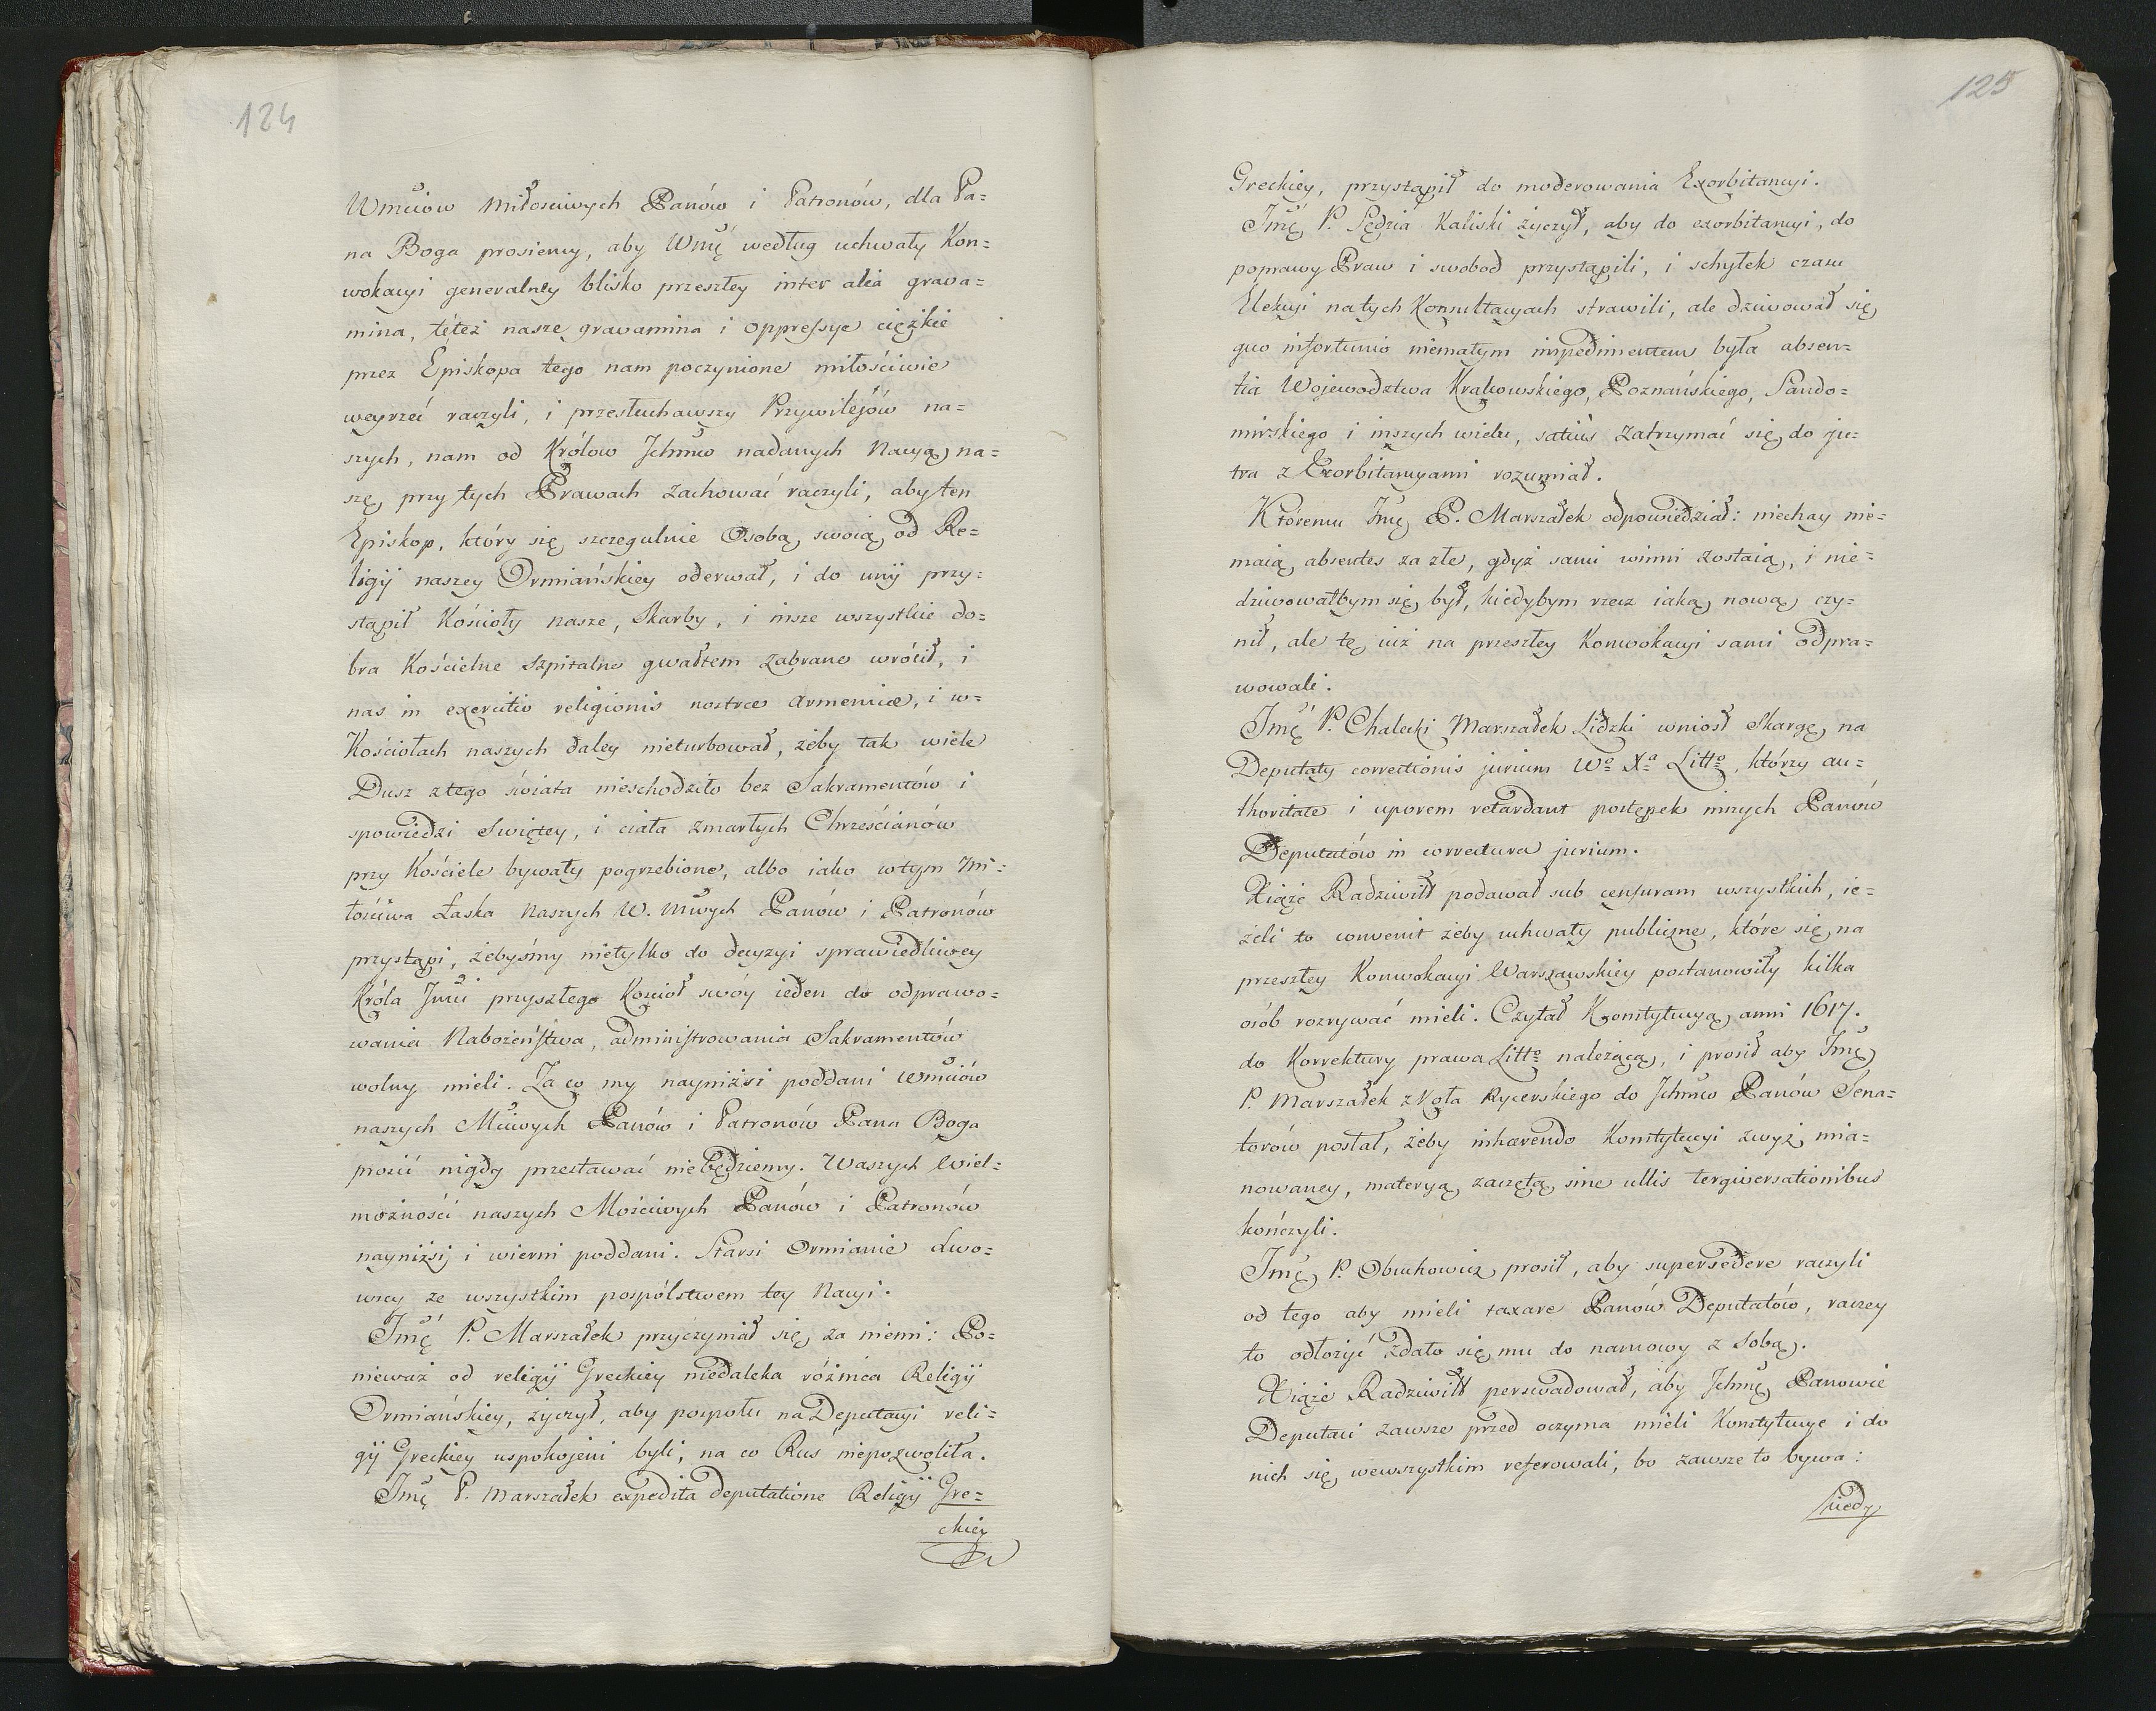 124
Wmciów Miłościwych Panów i Patronów, dla Pa=
na Boga prosiemy, aby Wmć według uchwały Kon=
wokacyi generalney blisko przeszłey inter alia grava=
mina, téteż nasze gravamina i oppressye ciężkie
przez Episkopa tego nam poczynione miłościwie
weyrzeć raczyli, i przesłuchawszy Przywilejów na=
szych, nam od Królów Ichmw nadanych Nacyą na=
szę przy tych Prawach zachować raczyli, aby ten
Episkop, który się szczegulnie Osobą swoią od Re=
ligij naszey Ormiańskiey oderwał, i do unij przy=
stąpił Kościoły nasze, Skarby, i insze wszystkie do=
bra Kościelne Szpitalne gwałtem zabrane wrócił, i
nas in exercitio religionis nostræ Armeniæ, i w=
Kościołach naszych daley nieturbował, żeby tak wiele
Dusz ztego świata nieschodziło bez Sakramentów i
spowiedzi Swiętey, i ciała zmarłych Chrześcianów
przy Kościele bywały pogrzebione, albo iako wtym Mi=
łościwa Łaska Naszych W. Mwych Panów i Patronów
przystąpi, żebyśmy nietylko do decyzyi sprawiedliwey
Króla Jmci przyszłego Kościoł swóy ieden do odprawo=
wania Nabożeństwa, administrowania Sakramentów
wolny mieli. Za co my nayniżsi poddani Wmciów
naszych Mciwych Panów i Patronów Pana Boga
prosić nigdy przestawać niebędziemy. Waszych Wiel=
możności naszych Mościwych Panów i Patronów
nayniżsi i wierni poddani. Starsi Ormianie Lwo=
wscy ze wszystkim pospólstwem tey Nacyi.
Jmć P. Marszałek przyczyniał się za niemi: Po=
nieważ od religij Greckiey niedaleka różnica Religij
Ormiańskiey, życzył, aby pospołu na Deputacyi reli=
gij Greckiey uspokojeni byli, na co Rus niepozwoliła.
Jmć P. Marszałek expedita deputatione Religij Gre=
ckiey
125
Greckiey, przystąpił do moderowania Exorbitancyi.
Jmć P. Sędzia Kaliski życzył, aby do exorbitancyi, do
poprawy Praw i swobod przystąpili, i schyłek czasu
Elekcyi na tych Konsultacyach strawili, ale dziwował się
quo infortunio niemałym impedimentem była absen=
tia Województwa Krakowskiego, Poznańskiego, Sando=
mirskiego i inszych wielu, satius zatrzymać się do ju=
tra z Exorbitancyami rozumiał.
Któremu Jmć P. Marszałek odpowiedział: niechay nie=
maią absentes za złe, gdyż sami winni zostaią, i nie=
dziwowałbym się był, kiedybym rzecz iaką nową czy=
nił, ale tę iuż na przeszłey Konwokacyi sami odpra=
wowali.
Jmć P. Chalecki Marszałek Lidzki wniosł Skargę na
Deputaty correctionis jurium Wo Xa Litto, którzy au=
thoritate i uporem retardant postępek inszych Panów
Deputatów in correctura jurium.
Xiążę Radziwiłł podawał sub censuram wszystkich, ie=
żeli to convenit żeby uchwały publiczne, które się na
przeszłey Konwokacyi Warszawskiey postanowiły kilka
osób rozrywać mieli. Czytał Konstytucyą anni 1617.
do Korrektury prawa Litto należącą, i prosił aby Jmć
P. Marszałek z Koła Rycerskiego do Ichmw Panów Sena=
torów posłał, żeby inhærendo Konstytucyi zwyż mia=
nowaney, materyą zaczętą sine ullis tergiversationibus
kończyli.
Jmć P. Obuchowicz prosił, aby supersedere raczyli
od tego aby mieli taxare Panów Deputatów, raczey
to odłożyć zdało się mu do namowy z sobą.
Xiąże Radziwiłł perswadował, aby Ichmć Panowie
Deputaci zawsze przed oczyma mieli Konstytucye i do
nich się wewszystkim referowali, bo zawsze to bywa:
kiedy